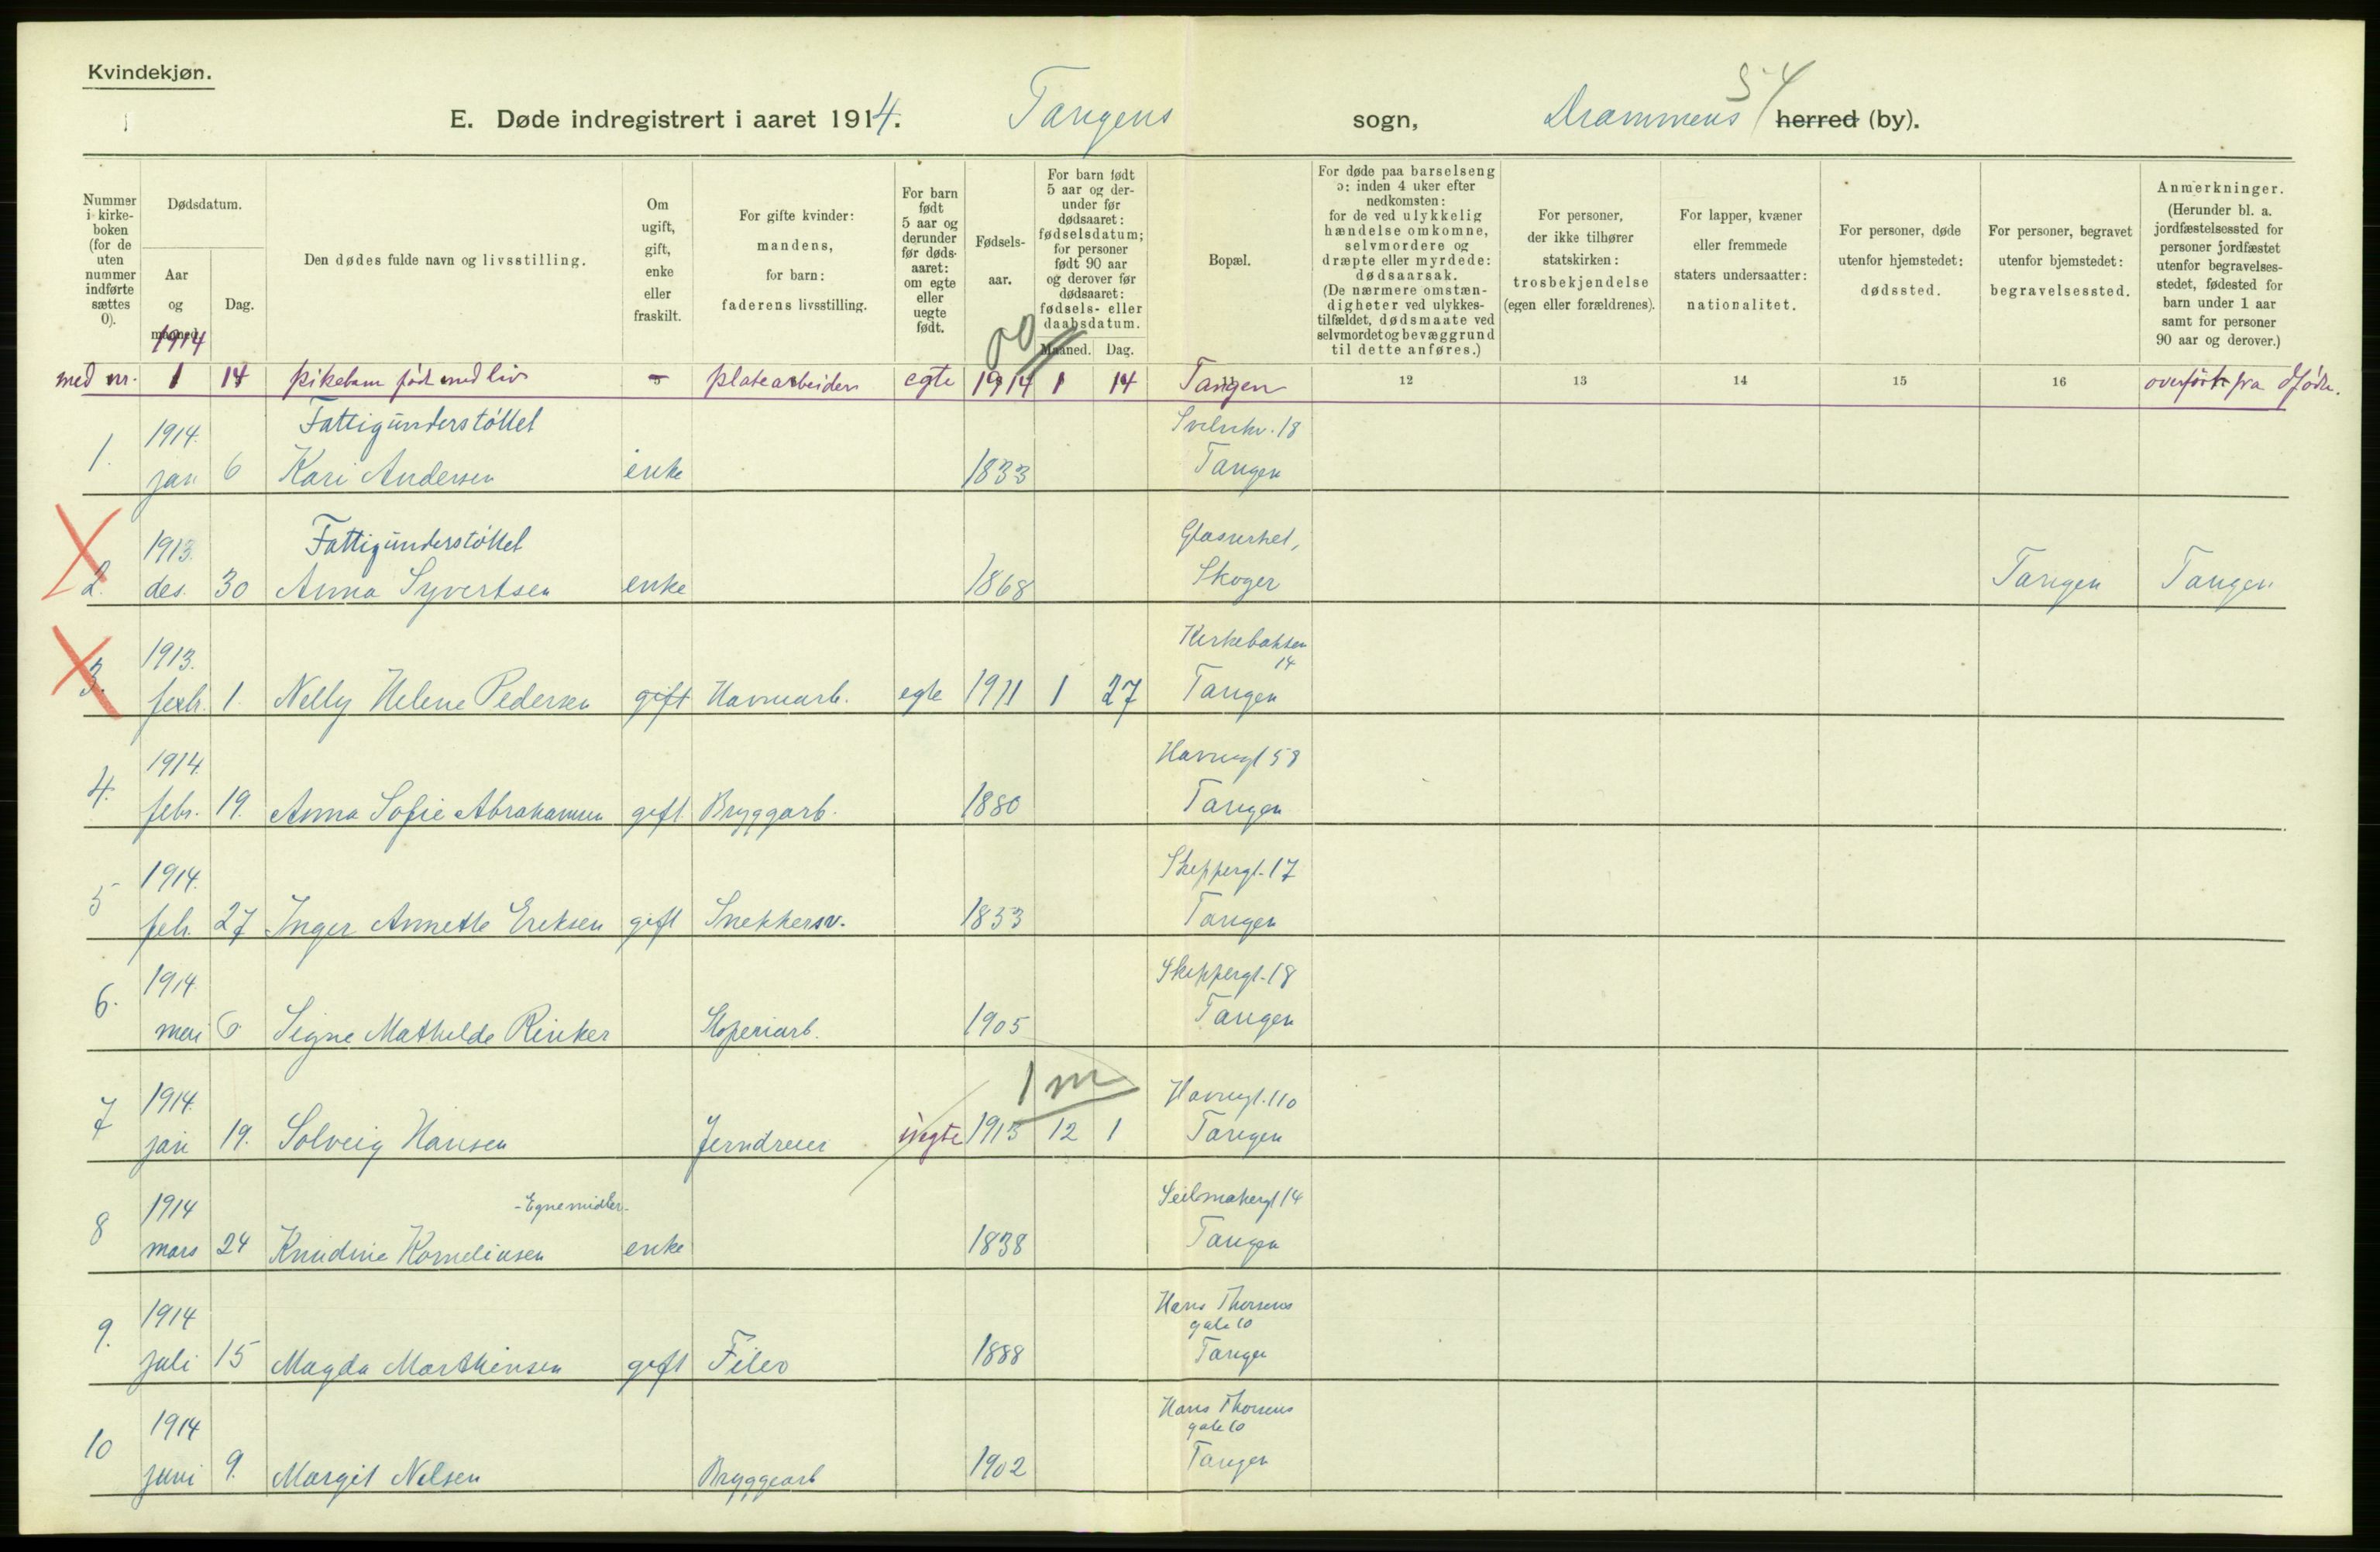 Kvindekjøn.
54
E. Døde indregistrert i aaret 1914. Tangens sogn, Drammens herred (by).
Nummer i kirke-boken (for de uten nummer indførte sættes 0).
Dødsdatum.
Aar og maaned.
Dag.
Den dødes fulde navn og livsstilling.
Om ugift, gift, enke eller fraskilt.
For gifte kvinder: mandens, for barn: faderens livsstilling.
For barn født 5 aar og derunder før døds-aaret: om egte eller uegte født.
Fødsels-aar.
For barn født 5 aar og der-under før dødsaaret: fødselsdatum; for personer født 90 aar og derover før dødsaaret: fødsels- eller daabsdatum.
Maaned. Dag.
Bopæl.
For døde paa barselseng ɔ: inden 4 uker efter nedkomsten: for de ved ulykkelig hændelse omkomne, selvmordere og dræpte eller myrdede: dødsaarsak. (De nærmere omstæn-digheter ved ulykkes-tilfældet, dødsmaate ved selvmordet og bevæggrund til dette anføres.)
For personer, der ikke tilhører statskirken: trosbekjendelse (egen eller forældrenes).
For lapper, kvæner eller fremmede staters undersaatter: nationalitet.
For personer, døde utenfor hjemstedet: dødssted.
For personer, begravet utenfor bjemstedet: begravelsessted.
Anmerkninger. (Herunder bl. a. jordfæstelsessted for personer jordfæstet utenfor begravelses-stedet, fødested for barn under 1 aar samt for personer 90 aar og derover.)
1914
00
med nr. 1 14 pikebarn født med liv - platearbeider egte 1914 1 14 Tangen 12 13 14 15 16 overført fra dfødte.
1914. Fattigunderstøttet Svelvkv. 18
1. jan 6 Kari Andersen enke 1833 Tangen
1913. Fattigunderstøttet Glassverket,
2. des. 30 Anna Syvertsen enke 1868 Skoger Tangen Tangen
1913. Kirkebakken 14
3. febr. 1. Nelly Helene Pedersen gift Havnearb. egte 1911 1 27 Tangen
1914. Havnegt 58
4. febr. 19. Anna Sofie Abrahamsen gift Bryggarb. 1880 Tangen
1914. Skeppergt. 17
5 feb. 27 Inger Annette Eriksen gift Snekkersv. 1853 Tangen
1914. Skeppergt. 18
6. mai 6 Signe Mathilde Rinker Stoperiarb. 1905 Tangen
1 m
1914. Havnegt. 110
7 jan 19. Solveig Hansen Jerndreier uegte 1913 12 1 Tangen
1914 - Egne midler - Seilmakergt 14
8 mars 24 Knudine Korneliusen enke 1838 Tangen
1914 Hans Thorsens gate 10
9. juli 15 Magda Marthinsen gift Filer 1888 Tangen
1914 Hans Thorsens gate 10
10 juni 9. Margit Nilsen Bryggearb 1902 Tangen